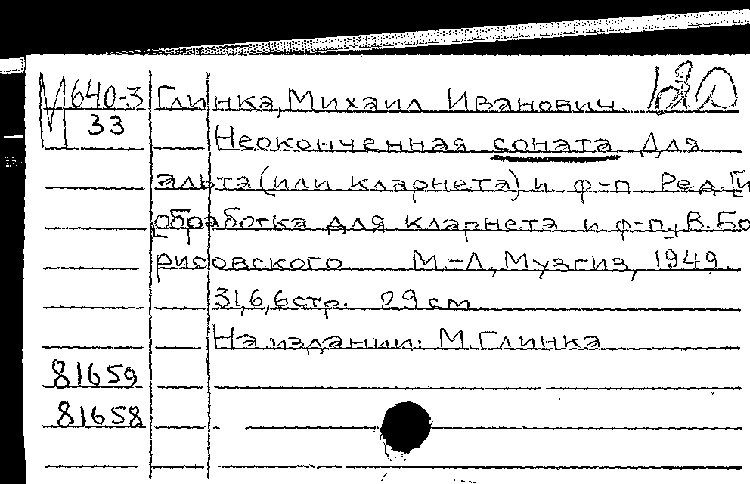 М640-3 Глинка, Михаил Иванович.
33 Неоконченная соната для
альта (или кларнета) и ф-п. Ред. [и
обработка для кларнета и ф-п., В. Бо
рисовского М.-Л., Музгиз, 1949.
31,6,6 стр. 29 см
На издании: М. Глинка
81659
81658